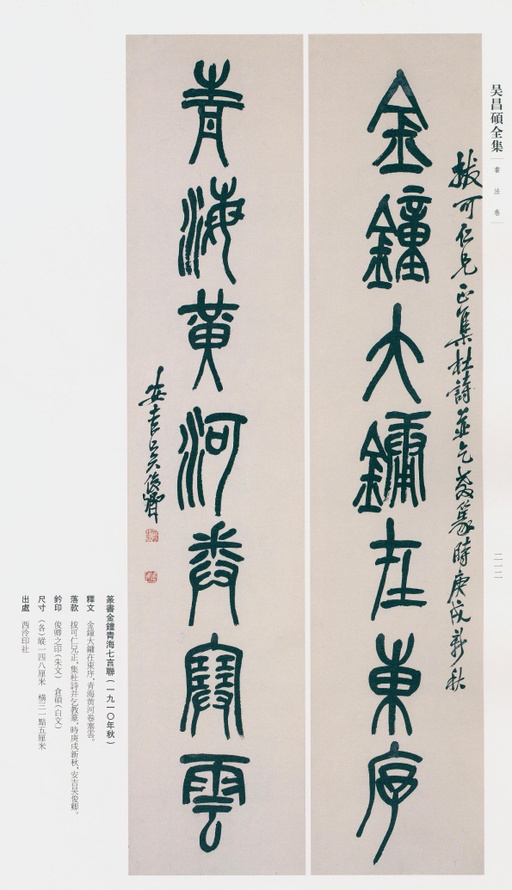 吴昌碩全集
書法卷
二一二
拔可仁兄正集杜詩並乞教篆時庚戌新秋
金鐘大鏞在東序
青海黄河卷塞雲
安吉吴俊卿
篆書金鐘青海七言聯(一九一〇年秋)
釋文 金鐘大鏞在東序,青海黄河卷塞雲。
落款 拔可仁兄正,集杜詩并乞教篆,時庚戌新秋,安吉吴俊卿。
鈐印 俊卿之印(朱文) 倉碩(白文)
尺寸 (各)縱一四八厘米 横三一點五厘米
出處 西泠印社